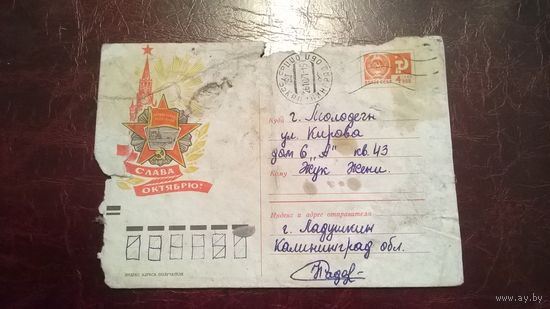 Куда г. Молодечн
ул. Кирова
дом 6 „А" кв. 43
Кому Жук Жени.
СЛАВА
ОКТЯБРЮ!
Индекс и адрес отправителя
г. Ладушкин
Калининград обл.
Индекс адреса получателя
www.ay.by